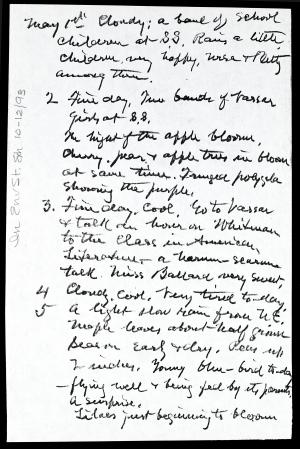 May 1st Cloudy; a band of school
children at S.S. Rains a little,
children very happy, Nurse &
among them.
2 Fine day, Two bands of Vassar
Girls at S.S.
The height of the apple bloom,
cherry, pear & apple trees in bloom
at same time. Fringed polygala
showing the purple.
3. Fine day. Cool, Go to Vassar
& talk an hour on Whitman
to the Class in American
Literature - a harum-scarum
talk. Miss Ballard very sweet.
4 Cloudy, cool. Very tired to-day.
5 A light slow rain from N.E.
Maple leaves about half grown
Beans Early & dry. Peas up
2 inches. Young blue-bird to-day
- flying well & being fed by its parents
a surprise.
Lilacs just beginning to bloom